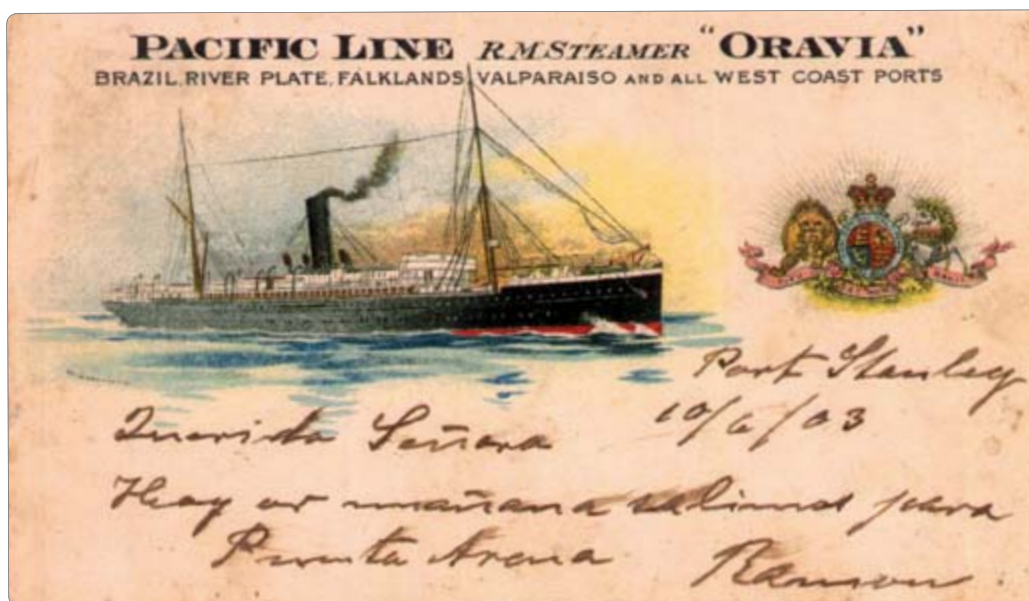 PACIFIC LINE R.M.STEAMER "ORAVIA"
BRAZIL, RIVER PLATE, FALKLANDS, VALPARAISO AND ALL WEST COAST PORTS
Port Stanley
10/6/03
Querida Señora
Hoy or mañana salimos para
Punta Arena
Ramon